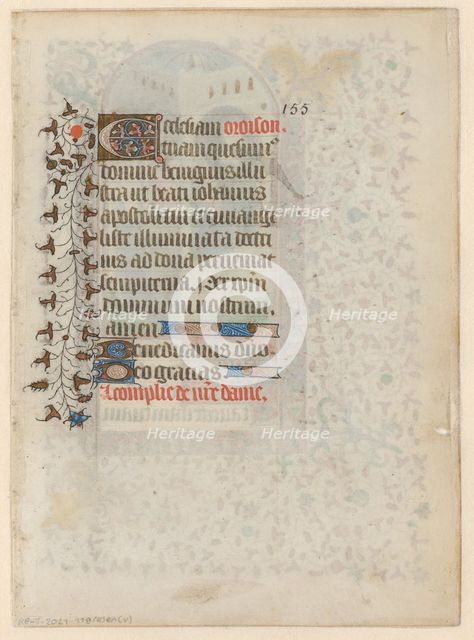 155
Ecclesiam oroison.
tuam quesumus
domine benignus illu
stra ut beati iohannis
apostoli tui et euuange
liste illuminata doctri
nis ad dona perueniat
sempiterna. Per xpm
dominum nostrum.
amen
Benedicamus dno
Deo gracias
A complie de nre dame.
Heritage
RP-T-2021-